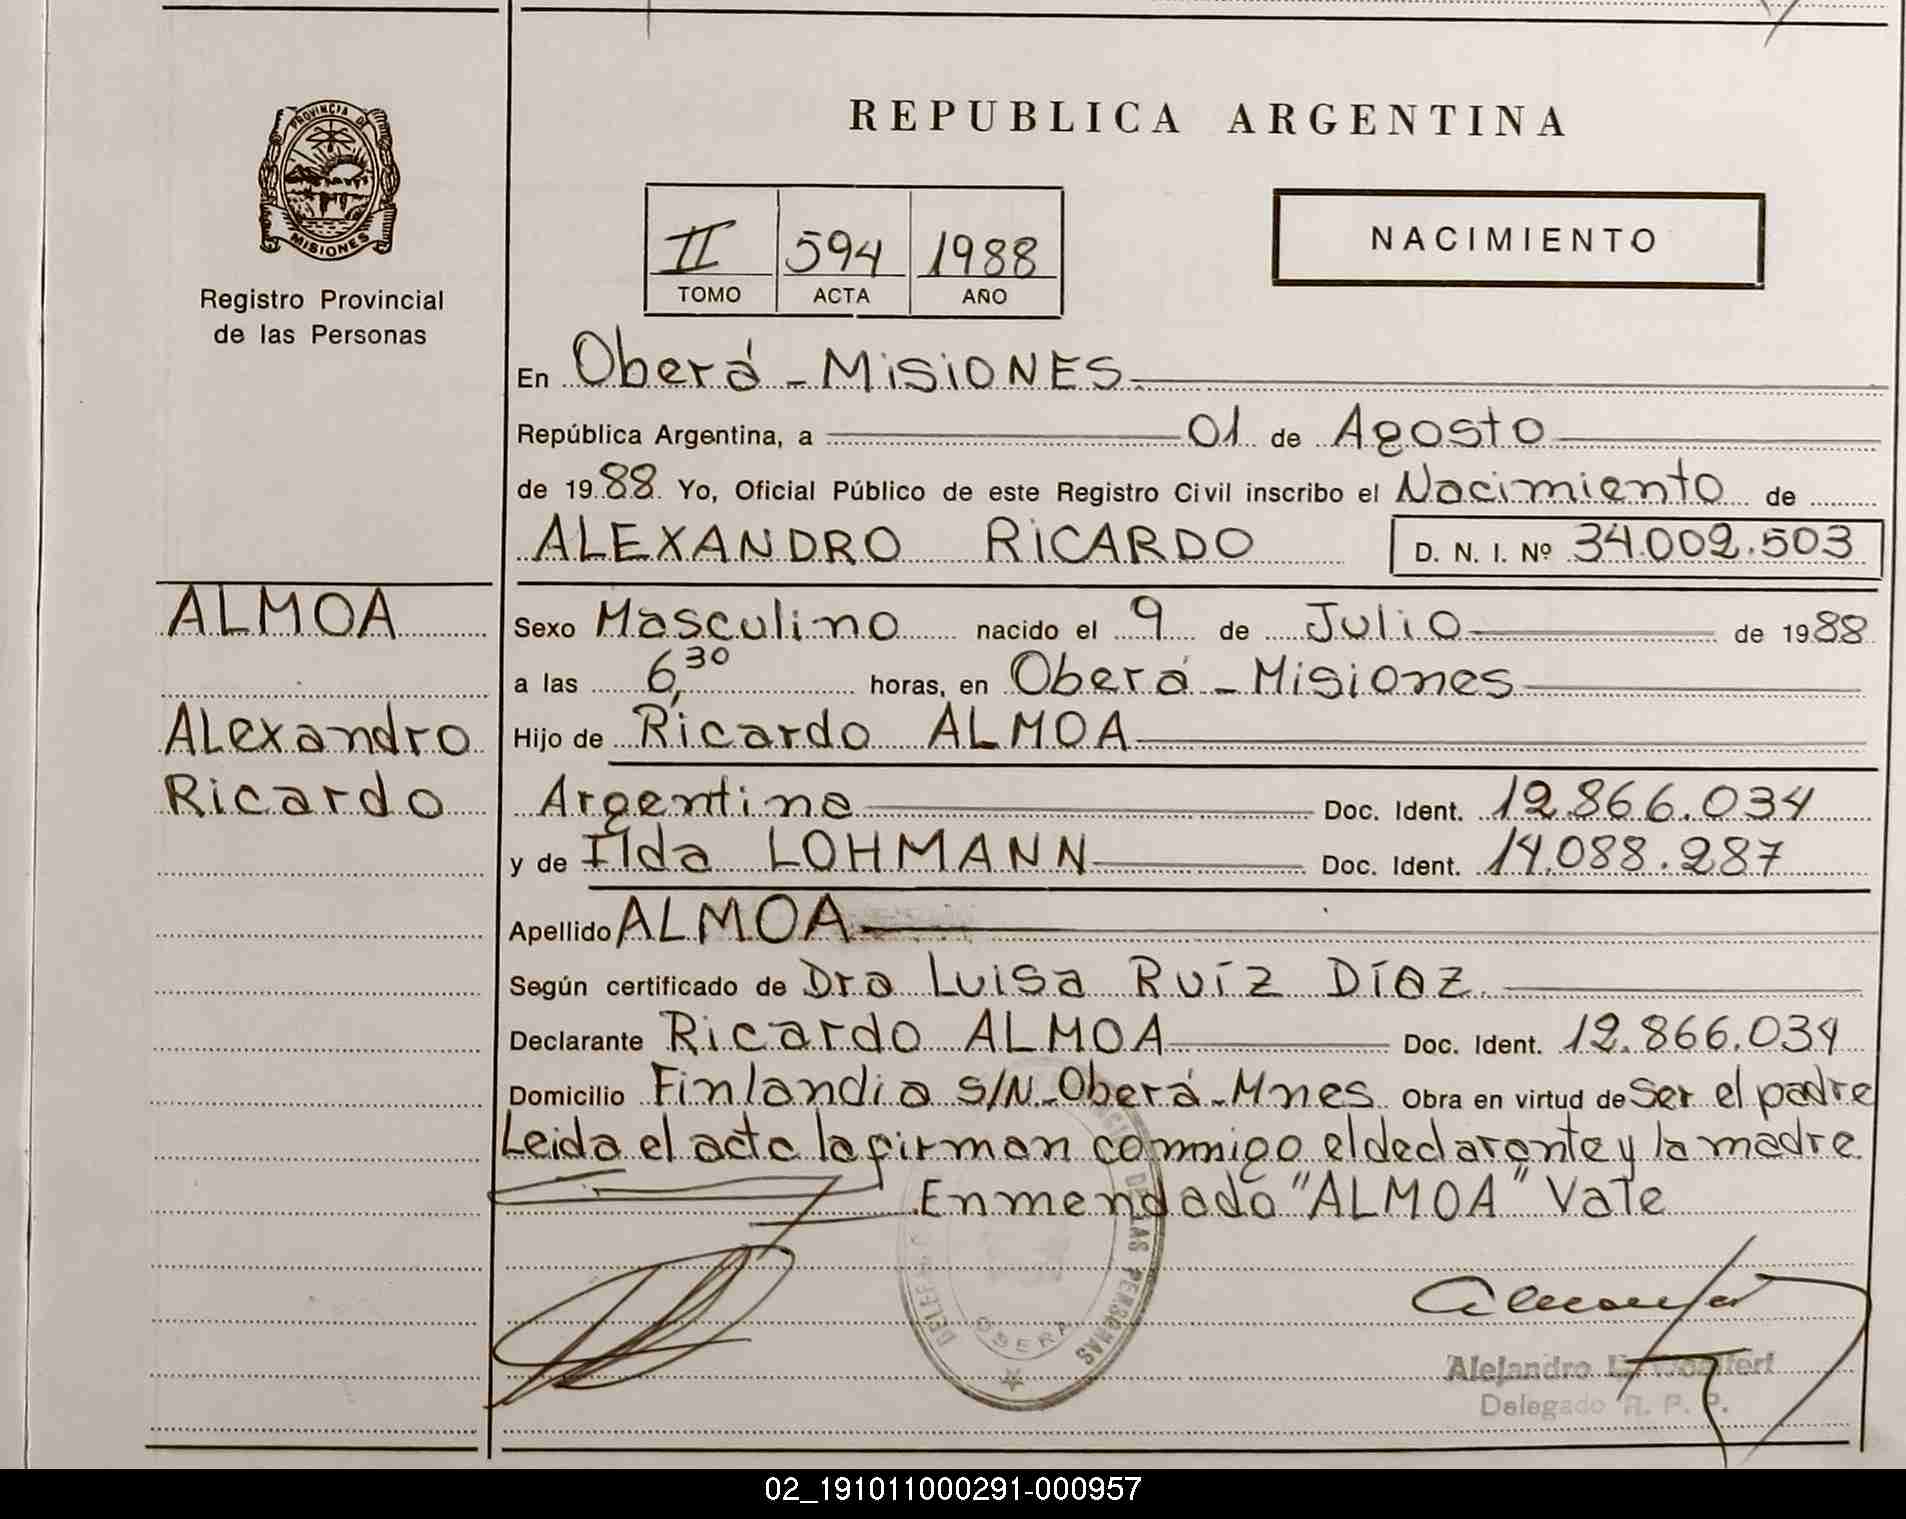 PROVINCIA DE
MISIONES
Registro Provincial
de las Personas
REPUBLICA ARGENTINA
II 594 1988
TOMO ACTA AÑO
NACIMIENTO
En Oberá - MISIONES
República Argentina, a 01 de Agosto
de 1988 Yo, Oficial Público de este Registro Civil inscribo el Nacimiento de
ALEXANDRO RICARDO D. N. I. Nº 34.002.503
ALMOA
Alexandro
Ricardo
Sexo Masculino nacido el 9 de Julio de 1988
a las 6,30 horas, en Oberá - Misiones
Hijo de Ricardo ALMOA
Argentina Doc. Ident. 12.866.034
y de Ilda LOHMANN Doc. Ident. 14.088.287
Apellido ALMOA
Según certificado de Dra Luisa Ruíz Díaz.
Declarante Ricardo ALMOA Doc. Ident. 12.866.034
Domicilio Finlandia S/N - Oberá - Mnes Obra en virtud de Ser el padre
Leida el acta la firman conmigo el declarante y la madre.
Enmendado "ALMOA" Vale
DE LAS PERSONAS
OBERA
Alejandro
Delegado R. P. P.
02_191011000291-000957